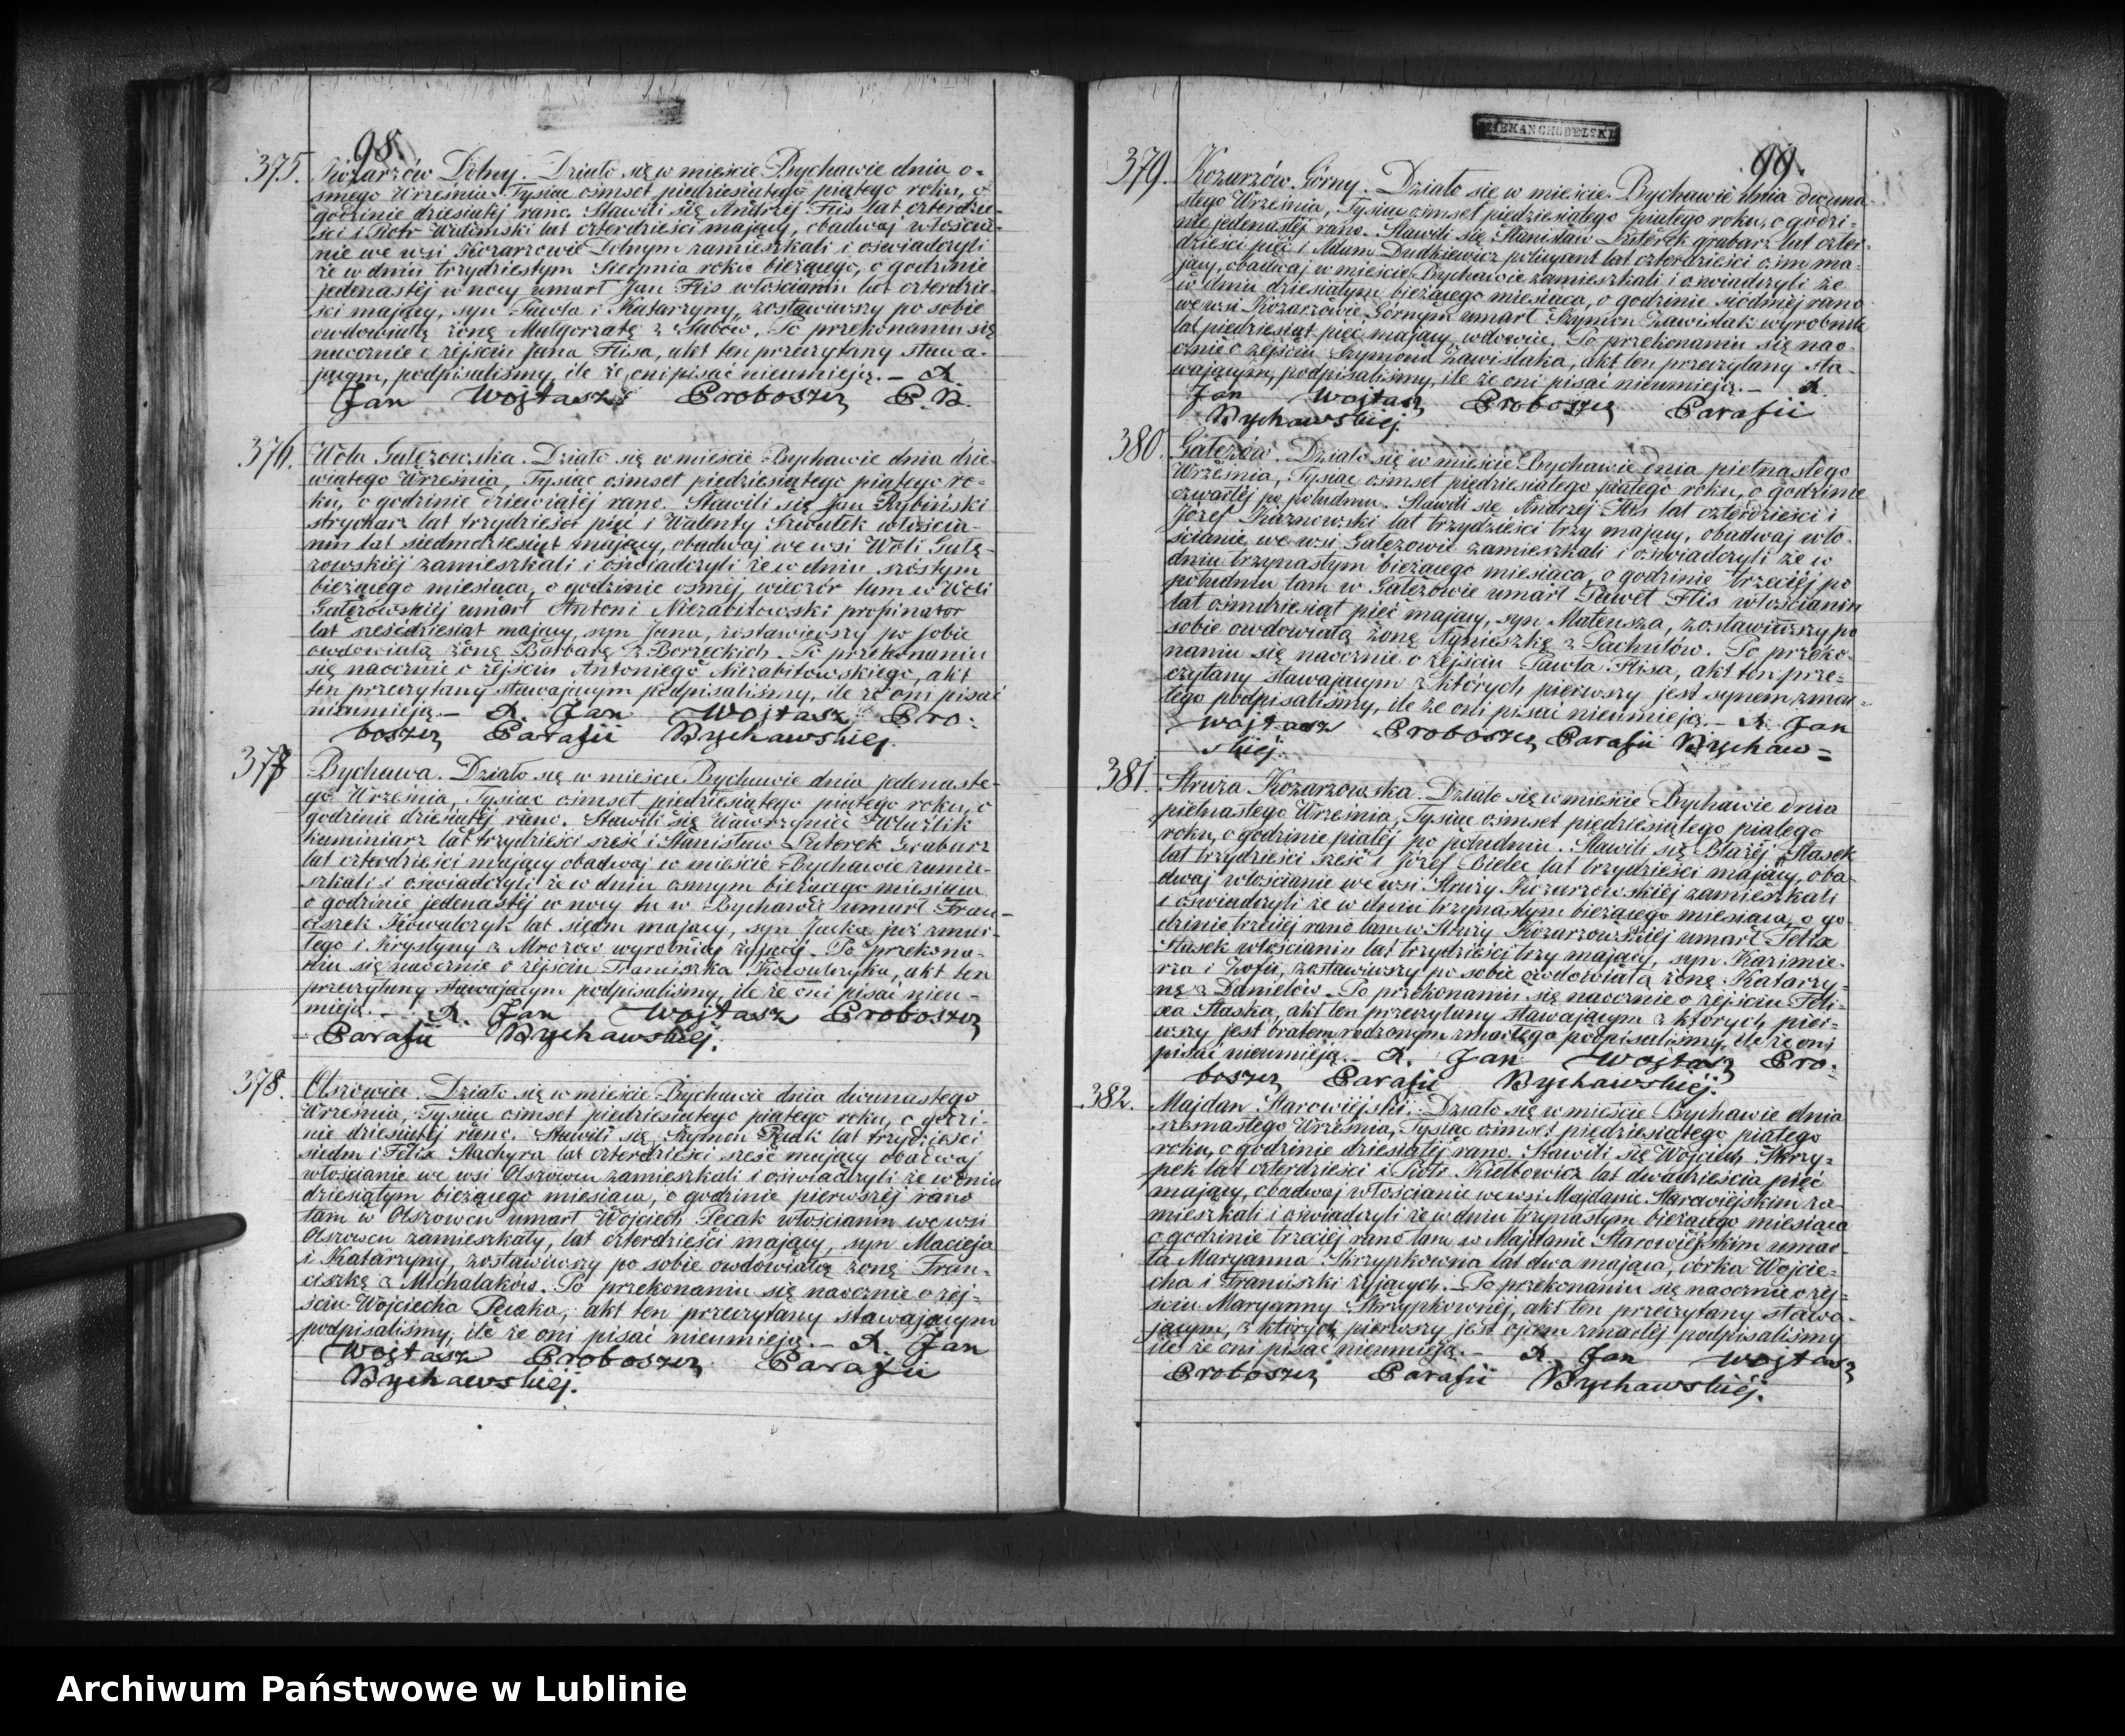 98.
375. Kozarzów Dolny. Działo się w mieście Bychawie dnia ó-
smego Września, Tysiąc ośmset piędziesiątego piątego roku, o
godzinie dziesiątéj rano. Stawili się Andrzej Flis lat czterdzie-
ści i Piotr lat czterdzieści mający, obadwaj włościa-
nie we wsi Kozarzowie Dolnym zamieszkali i oświadczyli
że w dniu trzydziestym Sierpnia roku bieżącego, o godzinie
jedenastéj w nocy umarł Jan Flis włościanin lat czterdzie-
ści mający, syn Pawła i Katarzyny, zostawiwszy po sobie
owdowiałą żonę Małgorzatę z . Po przekonaniu się
naocznie o zejściu Jana Flisa, akt ten przeczytany stawa-
jącym, podpisaliśmy, ile że oni pisać nieumieją. – X.
Jan Wojtasz Proboszcz P. B.
376. Wola Gałęzowska. Działo się w mieście Bychawie dnia dzie-
wiątego Września, Tysiąc ośmset piędziesiątego piątego ro-
ku, o godzinie dziewiątéj rano. Stawili się Jan Rybiński
strycharz lat trzydzieści pięć i Walenty Szwałek włościa-
nin lat siedmdziesiąt mający, obadwaj we wsi Woli Gałę-
zowskiéj zamieszkali i oświadczyli że w dniu szóstym
bieżącego miesiąca, o godzinie ósméj wieczór tam w Woli
Gałęzowskiéj umarł Antoni Niezabitowski propinator
lat sześćdziesiąt mający, syn Jana, zostawiwszy po sobie
owdowiałą żonę Barbarę z Borzęckich. Po przekonaniu
się naocznie o zejściu Antoniego Niezabitowskiego, akt
ten przeczytany stawającym podpisaliśmy, ile że oni pisać
nieumieją. – X. Jan Wojtasz Pro-
boszcz Parafii Bychawskiej.
377 Bychawa. Działo się w mieście Bychawie dnia jedenaste-
go Września, Tysiąc ośmset piędziesiątego piątego roku, o
godzinie dziesiątéj rano. Stawili się Wawrzyniec Wluźlik
kuminiarz lat trzydzieści sześć i Stanisław Szterek Grabarz
lat czterdzieści mający obadwaj w mieście Bychawie zamie-
szkali i oświadczyli że w dniu ósmym bieżącego miesiąca
o godzinie jedenastéj w nocy tu w Bychawie umarł Fran-
ciszek Kowalczyk lat siedm mający, syn Jacka już zmar-
łego i Krystyny z Mrozów wyrobnicy żyjącéj. Po przekona-
niu się naocznie o zejściu Franciszka Kowalczyka, akt ten
przeczytany stawającym podpisaliśmy, ile że oni pisać nieu-
mieją. – X. Jan Wojtasz Proboszcz
Parafii Bychawskiej.
378. Olszowiec. Działo się w mieście Bychawie dnia dwunastego
Września, Tysiąc ośmset piędziesiątego piątego roku, o godzi-
nie dziesiątéj rano. Stawili się Szymon Pęcak lat trzydzieści
siedm i Felix Stachyra lat czterdzieści sześć mający obadwaj
włościanie we wsi Olszowcu zamieszkali i oświadczyli że w dniu
dziesiątym bieżącego miesiąca, o godzinie pierwszéj rano
tam w Olszowcu umarł Wojciech Pęcak włościanin we wsi
Olszowcu zamieszkały, lat czterdzieści mający, syn Macieja
i Katarzyny, zostawiwszy po sobie owdowiałą żonę Fran-
ciszkę z Michalaków. Po przekonaniu się naocznie o zej-
ściu Wojciecha Pęcaka, akt ten przeczytany stawającym
podpisaliśmy, ile że oni pisać nieumieją. – X. Jan
Wojtasz Proboszcz Parafii
Bychawskiej.
99.
379. Kozarzów Górny. Działo się w mieście Bychawie dnia dwuna-
stego Września, Tysiąc ośmset piędziesiątego piątego roku, o godzi-
nie jedenastéj rano. Stawili się Stanisław Szterek grabarz lat czter-
dzieści pięć i Adam Dudkiewicz policyant lat czterdzieści ośm ma-
jący, obadwaj w mieście Bychawie zamieszkali i oświadczyli że
w dniu dziesiątym bieżącego miesiąca, o godzinie siódméj rano
we wsi Kozarzowie Górnym umarł Szymon Zawiślak wyrobnik
lat piędziesiąt pięć mający, wdowiec. Po przekonaniu się nao-
cznie o zejściu Szymona Zawiślaka, akt ten przeczytany sta-
wającym, podpisaliśmy, ile że oni pisać nieumieją. – X.
Jan Wojtasz Proboszcz Parafii
Bychawskiej.
380. Gałęzów. Działo się w mieście Bychawie dnia piętnastego
Września, Tysiąc ośmset piędziesiątego piątego roku, o godzinie
czwartéj po południu. Stawili się Andrzej Flis lat czterdzieści i
Józef lat trzydzieści trzy mający, obadwaj wło-
ścianie we wsi Gałęzowie zamieszkali i oświadczyli że w
dniu trzynastym bieżącego miesiąca, o godzinie trzeciéj po
południu tam w Gałęzowie umarł Paweł Flis włościanin
lat ośmdziesiąt pięć mający, syn Mateusza, zostawiwszy po
sobie owdowiałą żonę Agnieszkę z Pachutów. Po przeko-
naniu się naocznie o zejściu Pawła Flisa, akt ten prze-
czytany stawającym z których pierwszy jest synem zmar-
łego podpisaliśmy, ile że oni pisać nieumieją. – X. Jan
Wojtasz Proboszcz Parafii Bychaw-
skiej.
381. Struża Kozarzowska. Działo się w mieście Bychawie dnia
piętnastego Września, Tysiąc ośmset piędziesiątego piątego
roku, o godzinie piątéj po południu. Stawili się Błażej Stasek
lat trzydzieści sześć i Józef Bielec lat trzydzieści mający, oba-
dwaj włościanie we wsi Struży Kozarzowskiéj zamieszkali
i oświadczyli że w dniu trzynastym bieżącego miesiąca, o go-
dzinie trzeciéj rano tam w Struży Kozarzowskiéj umarł Felix
Stasek włościanin lat trzydzieści trzy mający, syn Kazimie-
rza i Zofii, zostawiwszy po sobie owdowiałą żonę Katarzy-
nę z Danielów. Po przekonaniu się naocznie o zejściu Feli-
xa Staska, akt ten przeczytany stawającym z których pier-
wszy jest bratem rodzonym zmarłego podpisaliśmy, ile że oni
pisać nieumieją. – X. Jan Wojtasz Pro-
boszcz Parafii Bychawskiej.
382. Majdan Starowiejski. Działo się w mieście Bychawie dnia
Września, Tysiąc ośmset piędziesiątego piątego
roku, o godzinie dziesiątéj rano. Stawili się Wojciech Skrzy-
pek lat czterdzieści i Piotr Kiełbowicz lat dwadzieścia pięć
mający, obadwaj włościanie we wsi Majdanie Starowiejskim za-
mieszkali i oświadczyli że w dniu trzynastym bieżącego miesiąca
o godzinie trzeciéj rano tam w Majdanie Starowiejskim umar-
ła Maryanna Skrzypkówna lat dwa mająca, córka Wojcie-
cha i Franciszki żyjących. Po przekonaniu się naocznie o zej-
ściu Maryanny Skrzypkownéj, akt ten przeczytany stawa-
jącym, z których pierwszy jest ojcem zmarłéj podpisaliśmy
ile że oni pisać nieumieją. – X. Jan Wojtasz
Proboszcz Parafii Bychawskiej.
Archiwum Państwowe w Lublinie